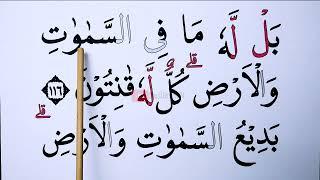 بَلْ لَّهٗ مَا فِي السَّمٰوٰتِ
وَالْاَرْضِ ۗ كُلٌّ لَّهٗ قٰنِتُوْنَ ﴿١١٦﴾
بَدِيْعُ السَّمٰوٰتِ وَالْاَرْضِ ۗ